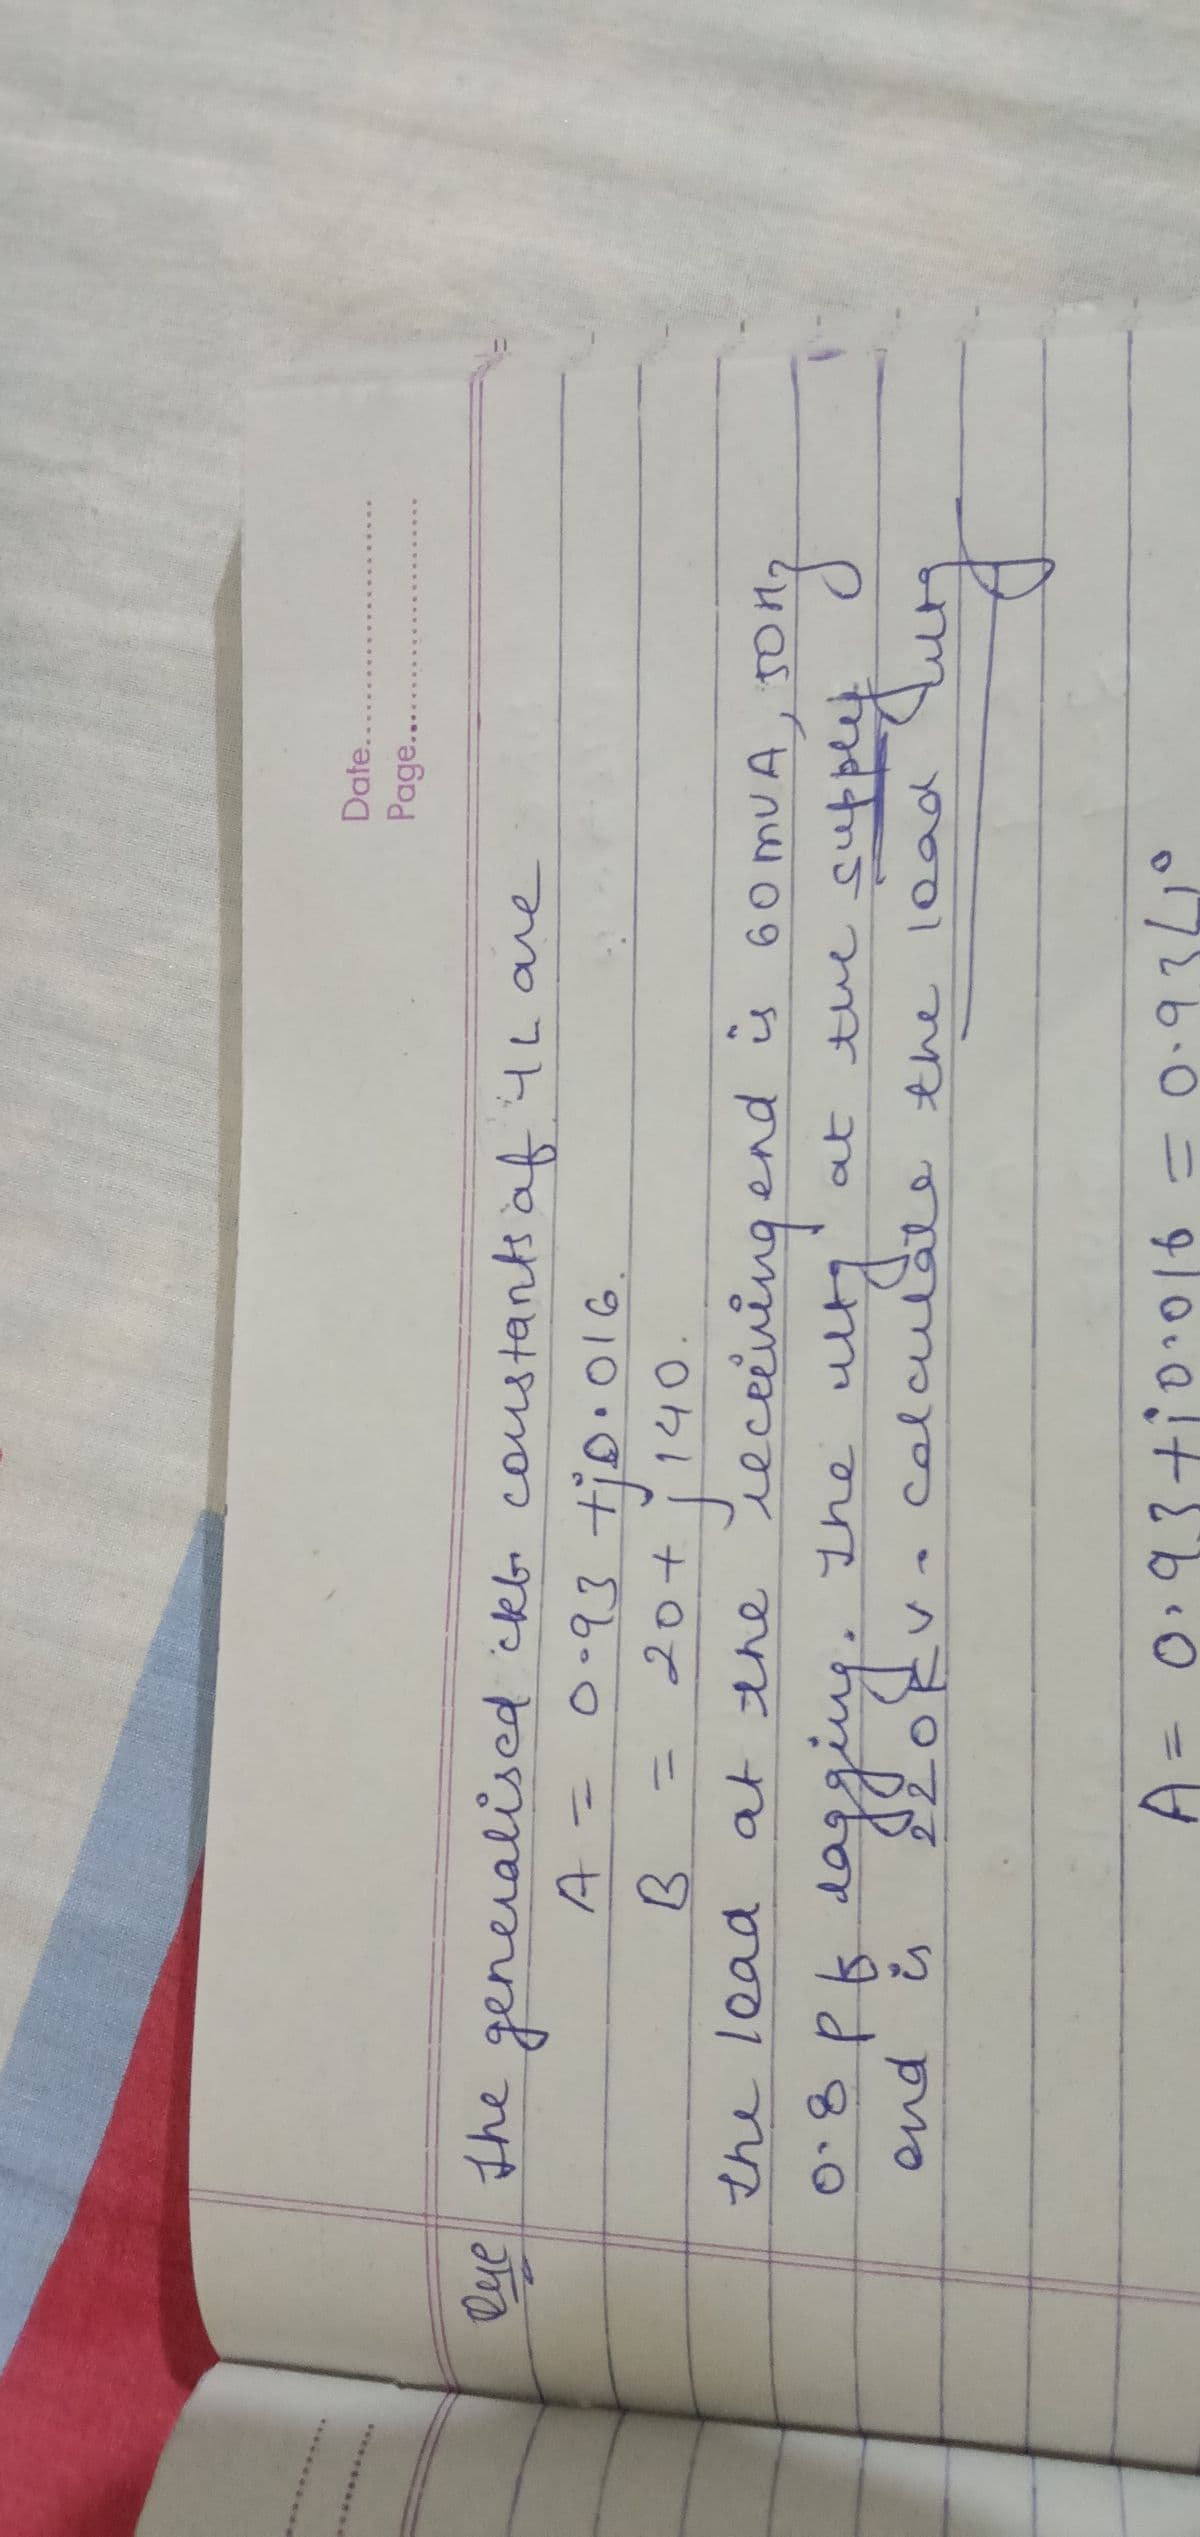 Date
Page
Que The generalised ckt constants of TL are
A = 0.93 + j0.016.
B = 20 + j 140.
The load at the receiving end is 60 mVA, 50Hz
0.8 Pf lagging. The vltg at the supply
end is 220KV. calculate the load vltg
A = 0.93 + j0.016 = 0.93∠1°